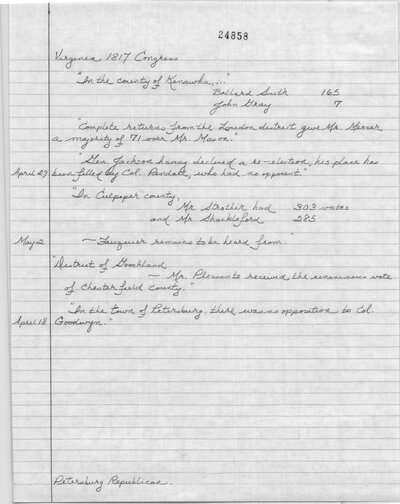 24858
Virginia 1817 Congress
"In the county of Kenawha,..."
Ballard Smith 165
John Gray 7
"Complete returns from the Loudon district give Mr. Mercer
a majority of 71 over Mr. Mason."
"Gen. Jackson having declined a re-election, his place has
April 29 been filled by Col. Pendall, who had no opponent."
"In Culpeper county,
Mr. Strother had 303 votes
and Mr. Shackleford 285
May 2 — Fauquier remains to be heard from."
"District of Goochland
— Mr. Pleasants received the unanimous vote
of Chesterfield County."
"In the town of Petersburg, there was no opposition to Col.
April 18 Goodwyn."
Petersburg Republican.